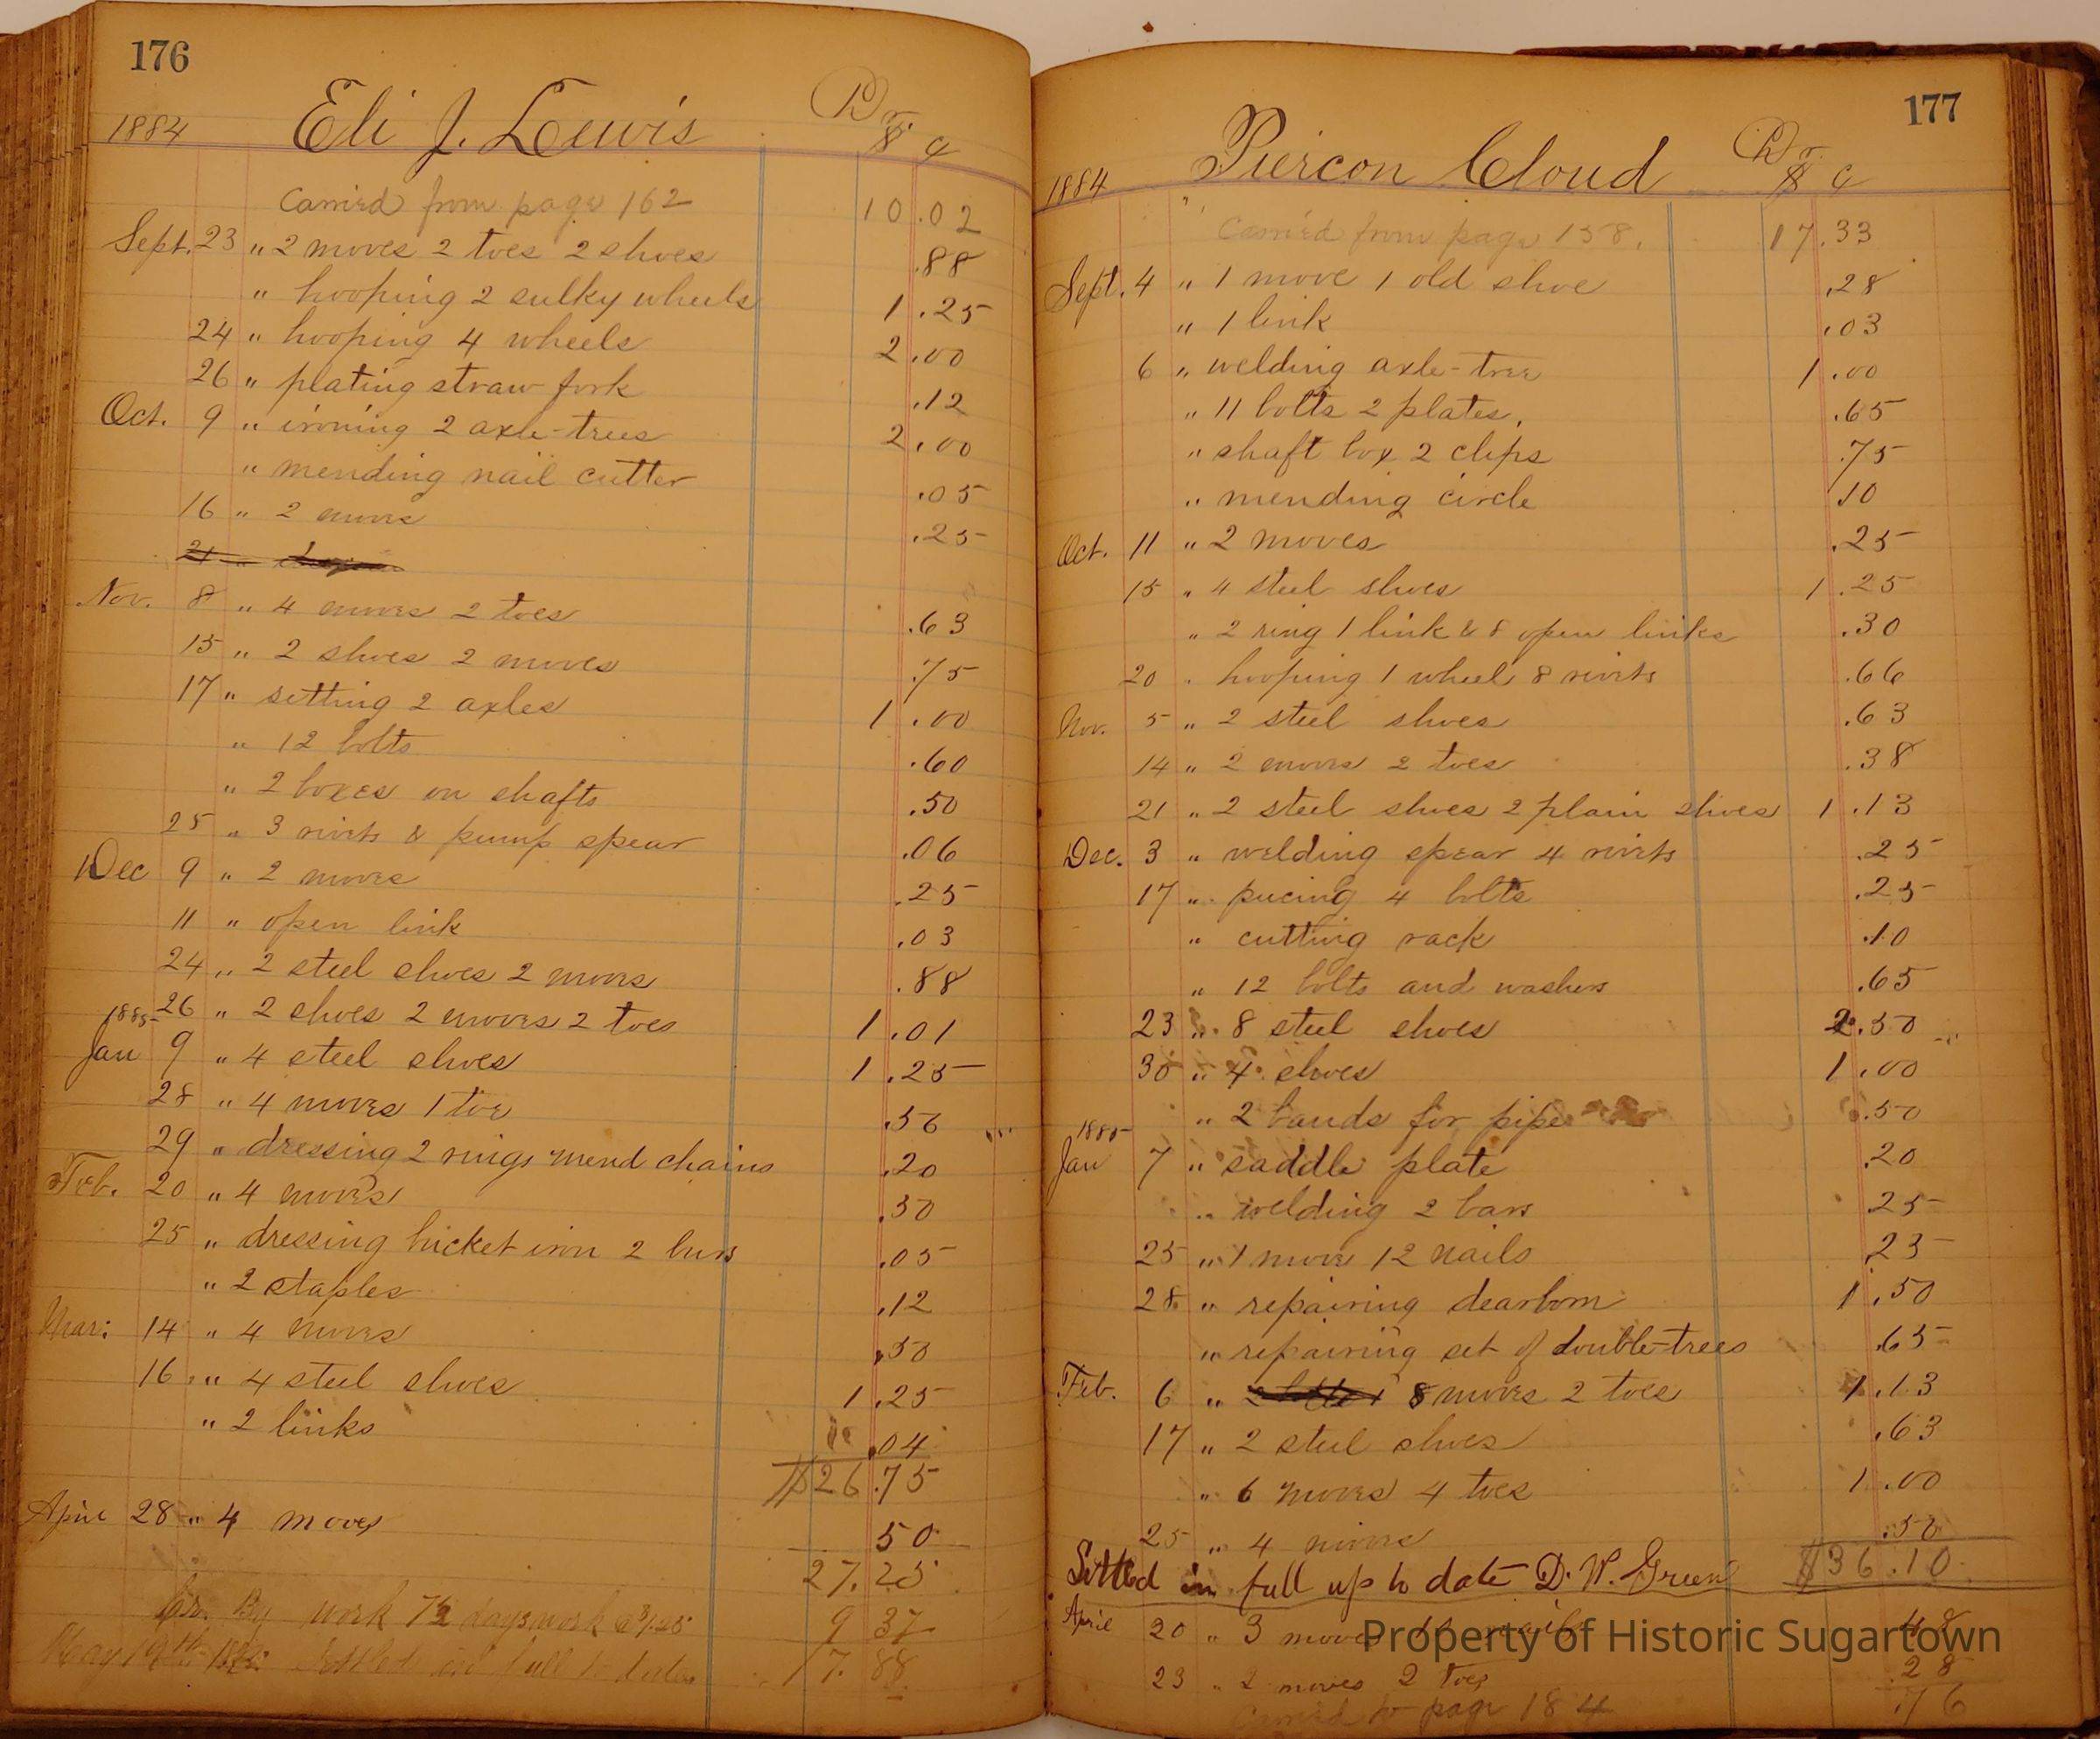 176
1884 Eli J. Lewis Dr.
$ c
Carried from page 162 10.02
Sept. 23 " 2 moves 2 toes 2 shoes .88
" hooping 2 sulky wheels 1.25
24 " hooping 4 wheels 2.00
26 " plating straw fork .12
Oct. 9 " ironing 2 axle-trees 2.00
" mending nail cutter .05
16 " 2 moves .25
21 "
Nov. 8 " 4 moves 2 toes .63
15 " 2 shoes 2 moves .75
17 " setting 2 axles 1.00
" 12 bolts .60
" 2 boxes on shafts .50
25 " 3 rivets & pump spear .06
Dec 9 " 2 moves .25
11 " open link .03
24 " 2 steel shoes 2 moves .88
26 " 2 shoes 2 moves 2 toes 1.01
1885
Jan 9 " 4 steel shoes 1.25
28 " 4 moves 1 toe .56
29 " dressing 2 rings mend chains .20
Feb. 20 " 4 moves .50
25 " dressing bucket iron 2 burs .05
" 2 staples .12
Mar: 14 " 4 moves .50
16 " 4 steel shoes 1.25
" 2 links .04
$26.75
April 28 " 4 moves 50
27.25
Cr. By work 7½ days work @ $1.25 9 37
May 19th 1885 Settled in full to date 17.88
177
1884 Piercon Cloud Dr.
$ c
Carried from page 158. 17.33
Sept. 4 " 1 move 1 old shoe .28
" 1 link .03
6 " welding axle-tree 1.00
" 11 bolts 2 plates, .65
" shaft box 2 clips .75
" mending circle .10
Oct. 11 " 2 moves .25
15 " 4 steel shoes 1.25
" 2 ring 1 link & 8 open links .30
20 " hooping 1 wheel 8 rivets .66
Nov. 5 " 2 steel shoes .63
14 " 2 moves 2 toes .38
21 " 2 steel shoes 2 plain shoes 1.13
Dec. 3 " welding spear 4 rivets .25
17 " piecing 4 bolts .25
" cutting rack .10
" 12 bolts and washers .65
23 " 8 steel shoes 2.50
30 " 4 shoes 1.00
" 2 bands for pipe .50
1885
Jan 7 " saddle plate .20
" welding 2 bars .25
25 " 1 move 12 nails .23
28 " repairing dearborn 1.50
" repairing set of double-trees .65
Feb. 6 " 8 moves 2 toes 1.13
17 " 2 steel shoes .63
" 6 moves 4 toes 1.00
25 " 4 moves .50
Settled in full up to date D. W. Green $36.10
April 20 " 3 moves nails 48
23 " 2 moves 2 toes .28
Carried to page 184 .76
Property of Historic Sugartown